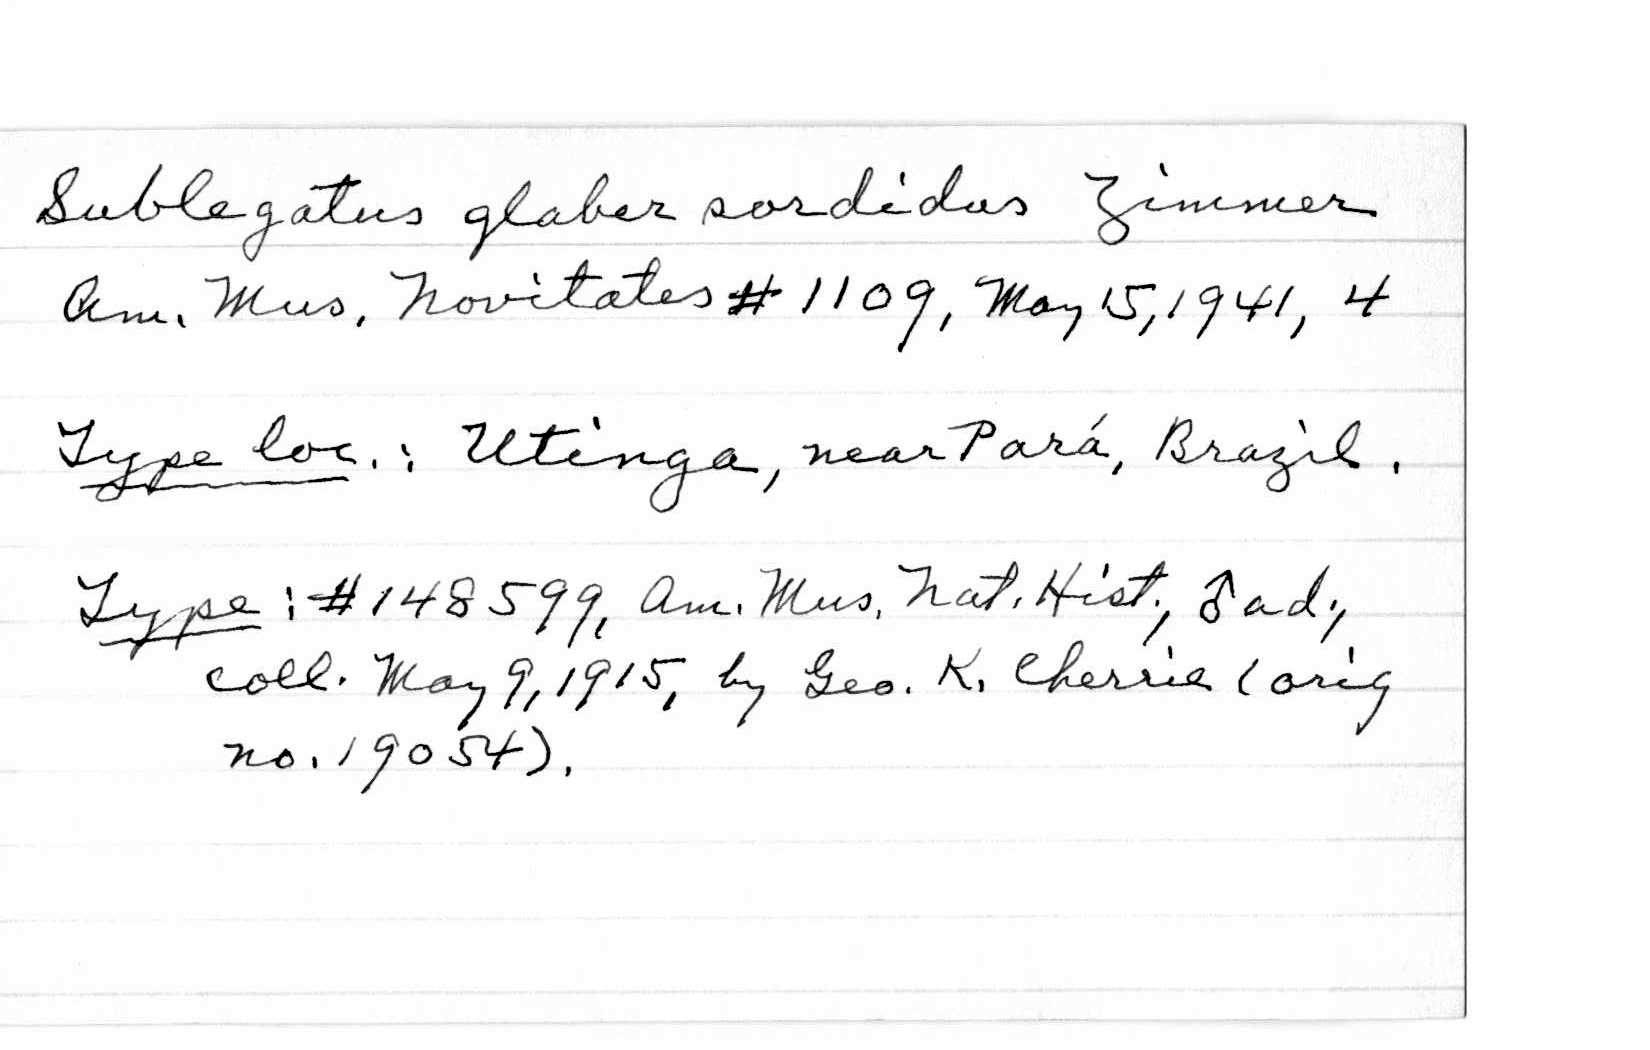 Sublegatus glaber sordidus Zimmer
Am. Mus. Novitates # 1109, May 15, 1941, 4
Type loc.: Utinga, near Pará, Brazil.
Type: #148599, Am. Mus. Nat. Hist., ♂ ad.,
coll. May 9, 1915, by Geo. K. Cherrie (orig
no. 19054).